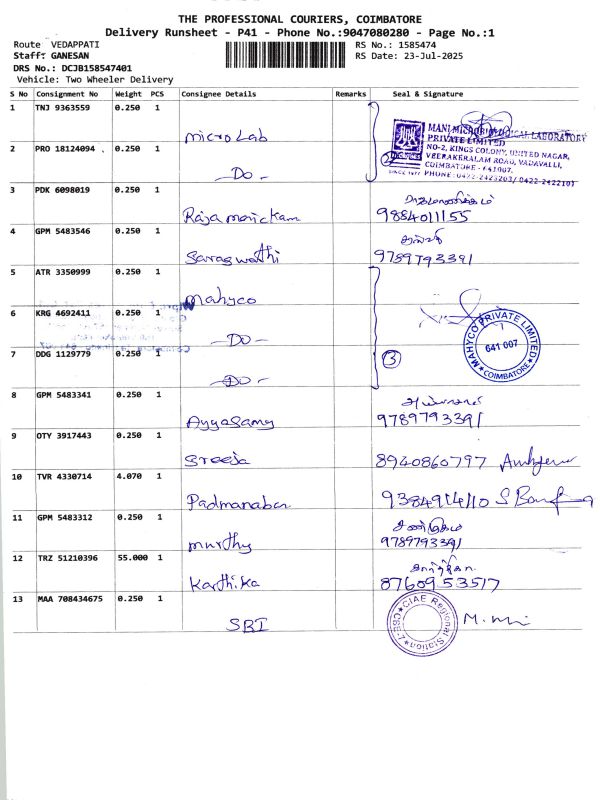 THE PROFESSIONAL COURIERS, COIMBATORE
Delivery Runsheet - P41 - Phone No.:9047080280 - Page No.:1
Route VEDAPPATI RS No.: 1585474
Staff: GANESAN RS Date: 23-Jul-2025
DRS No.: DCJB158547401
Vehicle: Two Wheeler Delivery
S No Consignment No Weight PCS Consignee Details Remarks Seal & Signature
1 TNJ 9363559 0.250 1 Micro Lab
MANI MICROBIOLOGICAL LABORATORY
PRIVATE LIMITED
NO-2, KINGS COLONY, UNITED NAGAR,
VEERAKERALAM ROAD, VADAVALLI,
COIMBATORE - 641007.
PHONE: 0422-2423203/ 0422-2422101
2 PRO 18124094 0.250 1 -Do-
3 PDK 6098019 0.250 1 Rajamanickam 9884011155
4 GPM 5483546 0.250 1 Saraswathi 9789793391
5 ATR 3350999 0.250 1 Mahyco
6 KRG 4692411 0.250 1 -Do-
MAHYCO PRIVATE LIMITED
641 007
COIMBATORE
7 DDG 1129779 0.250 1 -Do- 3
8 GPM 5483341 0.250 1 Ayyasamy 9789793391
9 OTY 3917443 0.250 1 Sreeja 8940860797
10 TVR 4330714 4.070 1 Padmanaban 9384914110
11 GPM 5483312 0.250 1 Murthy 9789793391
12 TRZ 51210396 55.000 1 Karthika கார்த்திகா 8760953517
13 MAA 708434675 0.250 1 SBI
CIAE Regional Station
CBE-7